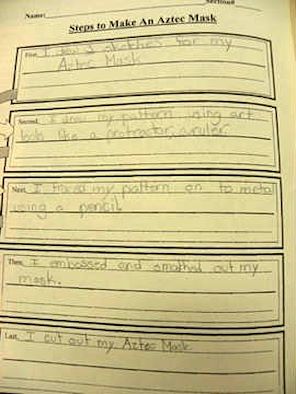 Name: Section
Steps to Make An Aztec Mask
First, I sketches for my
Aztec Mask
Second, I drew my pattern using art
like a protractor, ruler.
Next, I traced my pattern on to metal
using a pencil
Then, I embossed and smothed out my
mask.
Last, I cut out my Aztec Mask